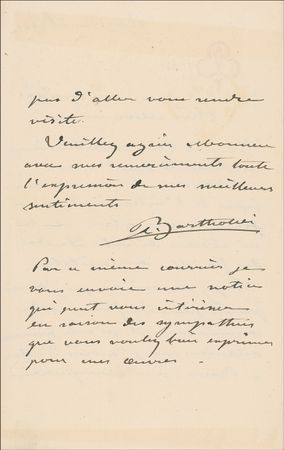 pas d'aller vous rendre
visite.
Veuillez agréer Monsieur
avec mes remerciements toute
l'expression de mes meilleurs
sentiments
Bartholdi
Par ce même courrier je
vous envoie une notice
qui peut vous intéresser
en raison des sympathies
que vous voulez bien exprimer
pour mes œuvres -